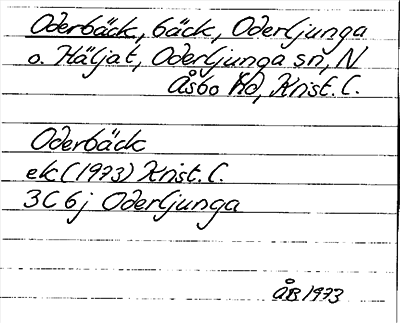 Oderbäck, bäck, Oderljunga
o. Häljat, Oderljunga sn, N
Åsbo hd, Krist. l.
Oderbäck
ek (1973) Krist. l.
3C 6j Oderljunga
ÅB 1973